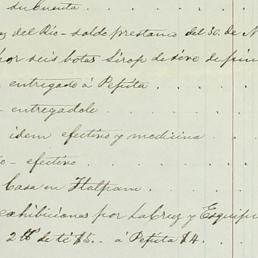 su cuenta
del Rio - saldo prestamo del 30. de N
por seis botes Sirop de sève de pin
entregado á Pepita
entregadole
idem efectivo y medicina
o - efectivo
Casa en Tlalpam
exhibiciones por La Cruz y Esquipu
2 lb de té $5.. á Pepita $4.